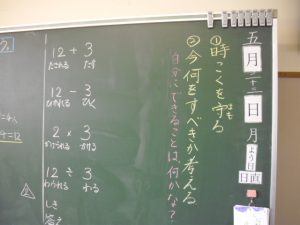 五月二十二日月よう日
日直
①時こくを守る
まも
②今何をすべきか考える
自分にできることは、何かな？
12 + 3
たされる たす
12 - 3
ひかれる ひく
2 × 3
かけられる かける
12 ÷ 3
わられる わる
しき
答え